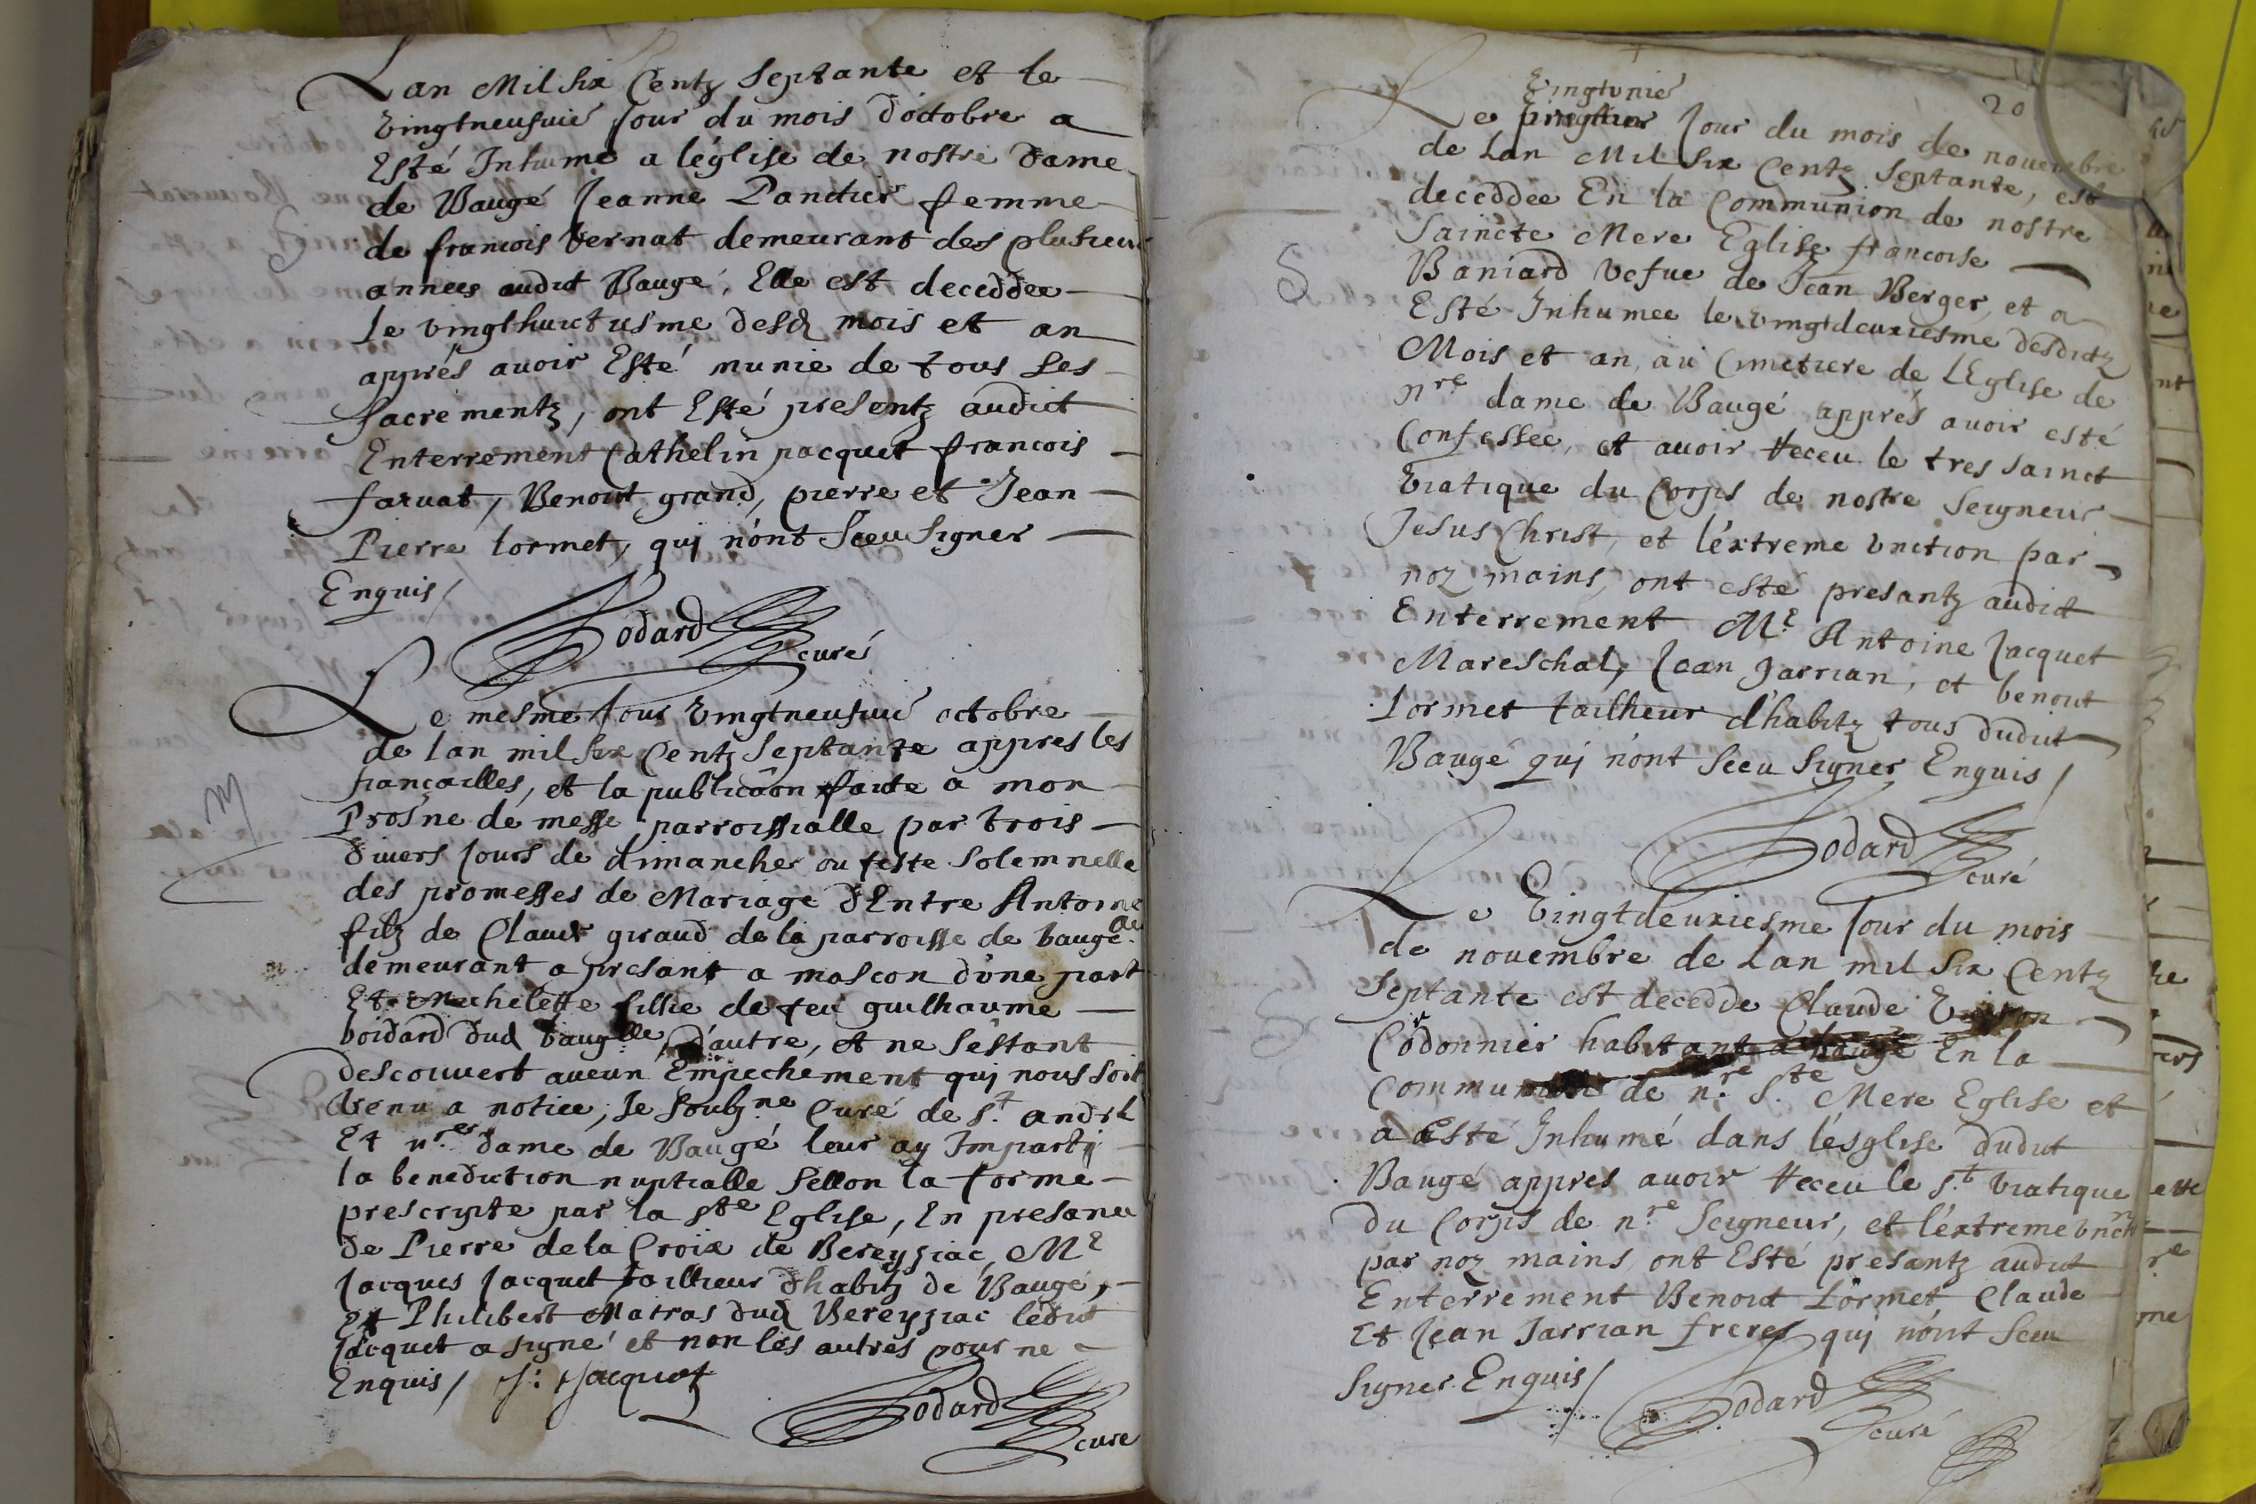 Lan Mil Six Centz Septante et le
vingtneufuié Jour du mois d'octobre a
Esté Inhumé a l'église de nostre dame
de Baugé Jeanne Panctier femme
de francois Vernat demeurant des plusieurs
annees audict Baugé, Elle est deceddee
le vingthuictiesme desd mois et an
apprés auoir Esté munie de tous Les
sacrementz, ont Esté presentz audict
Enterrement Cathelin pacquet francois
faruat, Benoist grand, pierre et Jean
Pierre Lormet, quj n'ont Sceu Signer
Enquis /
Godard curé
Le mesmé Jour vingtneufuié octobre
de lan mil six Centz Septante appres les
fiançailles, et la publicaôn faite a mon
Prosne de messe parroissialle par trois
diuers Jours de dimanche ou feste solemnelle
des promesses de Mariage d'Entre Antoine
filz de Claude giraud de la parroisse de baugé
demeurant a presant a mascon d'une part
Et Michelette fillie de feu guilhaume
boidard dud d'autre, et ne s'estant
descouvert aucun Empechement quj nous soit
Venu a notice, Je soubz.ne Curé de S.t andré
Et n.re dame de Baugé leur ay Impartj
la benediction nuptialle sellon la forme
prescripte par la Ste Eglise, En presance
de Pierre de la Croix de Bereyziac, M.e
Jacques Jacquet tailleur d'habitz de Baugé,
Et Philibert Matras dud Bereyziac ledit
Jacquet a signé et non les autres pour ne
Enquis / J: Jacquet
Godard curé
20
Vingtunié
Le Jour du mois de nouembre
de Lan Mil Six Centz Septante, est
deceddee En la Communion de nostre
Saincte Mere Eglise francoise
S
Baniard vefue de Jean Berger, et a
Esté Inhumee le vingtdeuxiesme desdictz
Mois et an, au Cimetiere de LEglise de
nre dame de Baugé apprés auoir esté
Confessée, et auoir Receu le tres sainct
Viatique du Corps de nostre Seigneur
Jesus Christ, et l'extreme vnction par
noz mains, ont esté presantz audict
Enterrement M.e Antoine Jacquet
Mareschal, Jean Jarrian, et benoit
Lormet tailheur d'habitz tous dudict
Baugé quj n'ont Sceu Signer Enquis /
Godard curé
Le Vingtdeuxiesme Jour du mois
de nouembre de Lan mil six Centz
Septante est decedde Claude
Cordonnier habitant a baugé En la
Communion de n.re S.te Mere Eglise et
a Esté Inhumé dans l'ésglise dudict
Baugé appres auoir Receu le S.t Viatique
du Corps de n.re Seigneur, et l'extreme vnction
par noz mains, ont Esté presantz audict
Enterrement Benoict Lormet, Claude
Et Jean Jarrian freres quj n'ont Sceu
Signer Enquis /
Godard curé